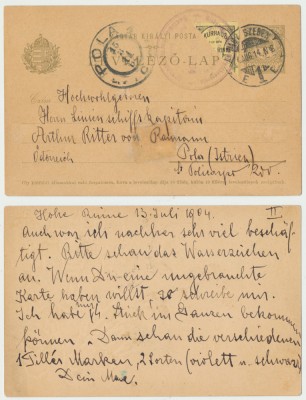 MAGYAR KIRÁLYI POSTA
LEVELEZŐ-LAP
POLA
Hochwohlgeboren
Herrn Linienschiffs Kapitän
Arthur Ritter von
Österreich
Pola (Istrien)
Hohe Rinne 13. Juli 1904. II
Auch war ich nachher sehr viel beschäf-
tigt. Bitte schau das Wasserzeichen
an. Wenn Du eine ungebrauchte
Karte haben willst, so schreibe mir.
Ich habe nur Stück im Ganzen bekommen
können. Dann schau die verschiedenen
1 Filler Marken, 2 Sorten (violett u. schwarz)
Dein